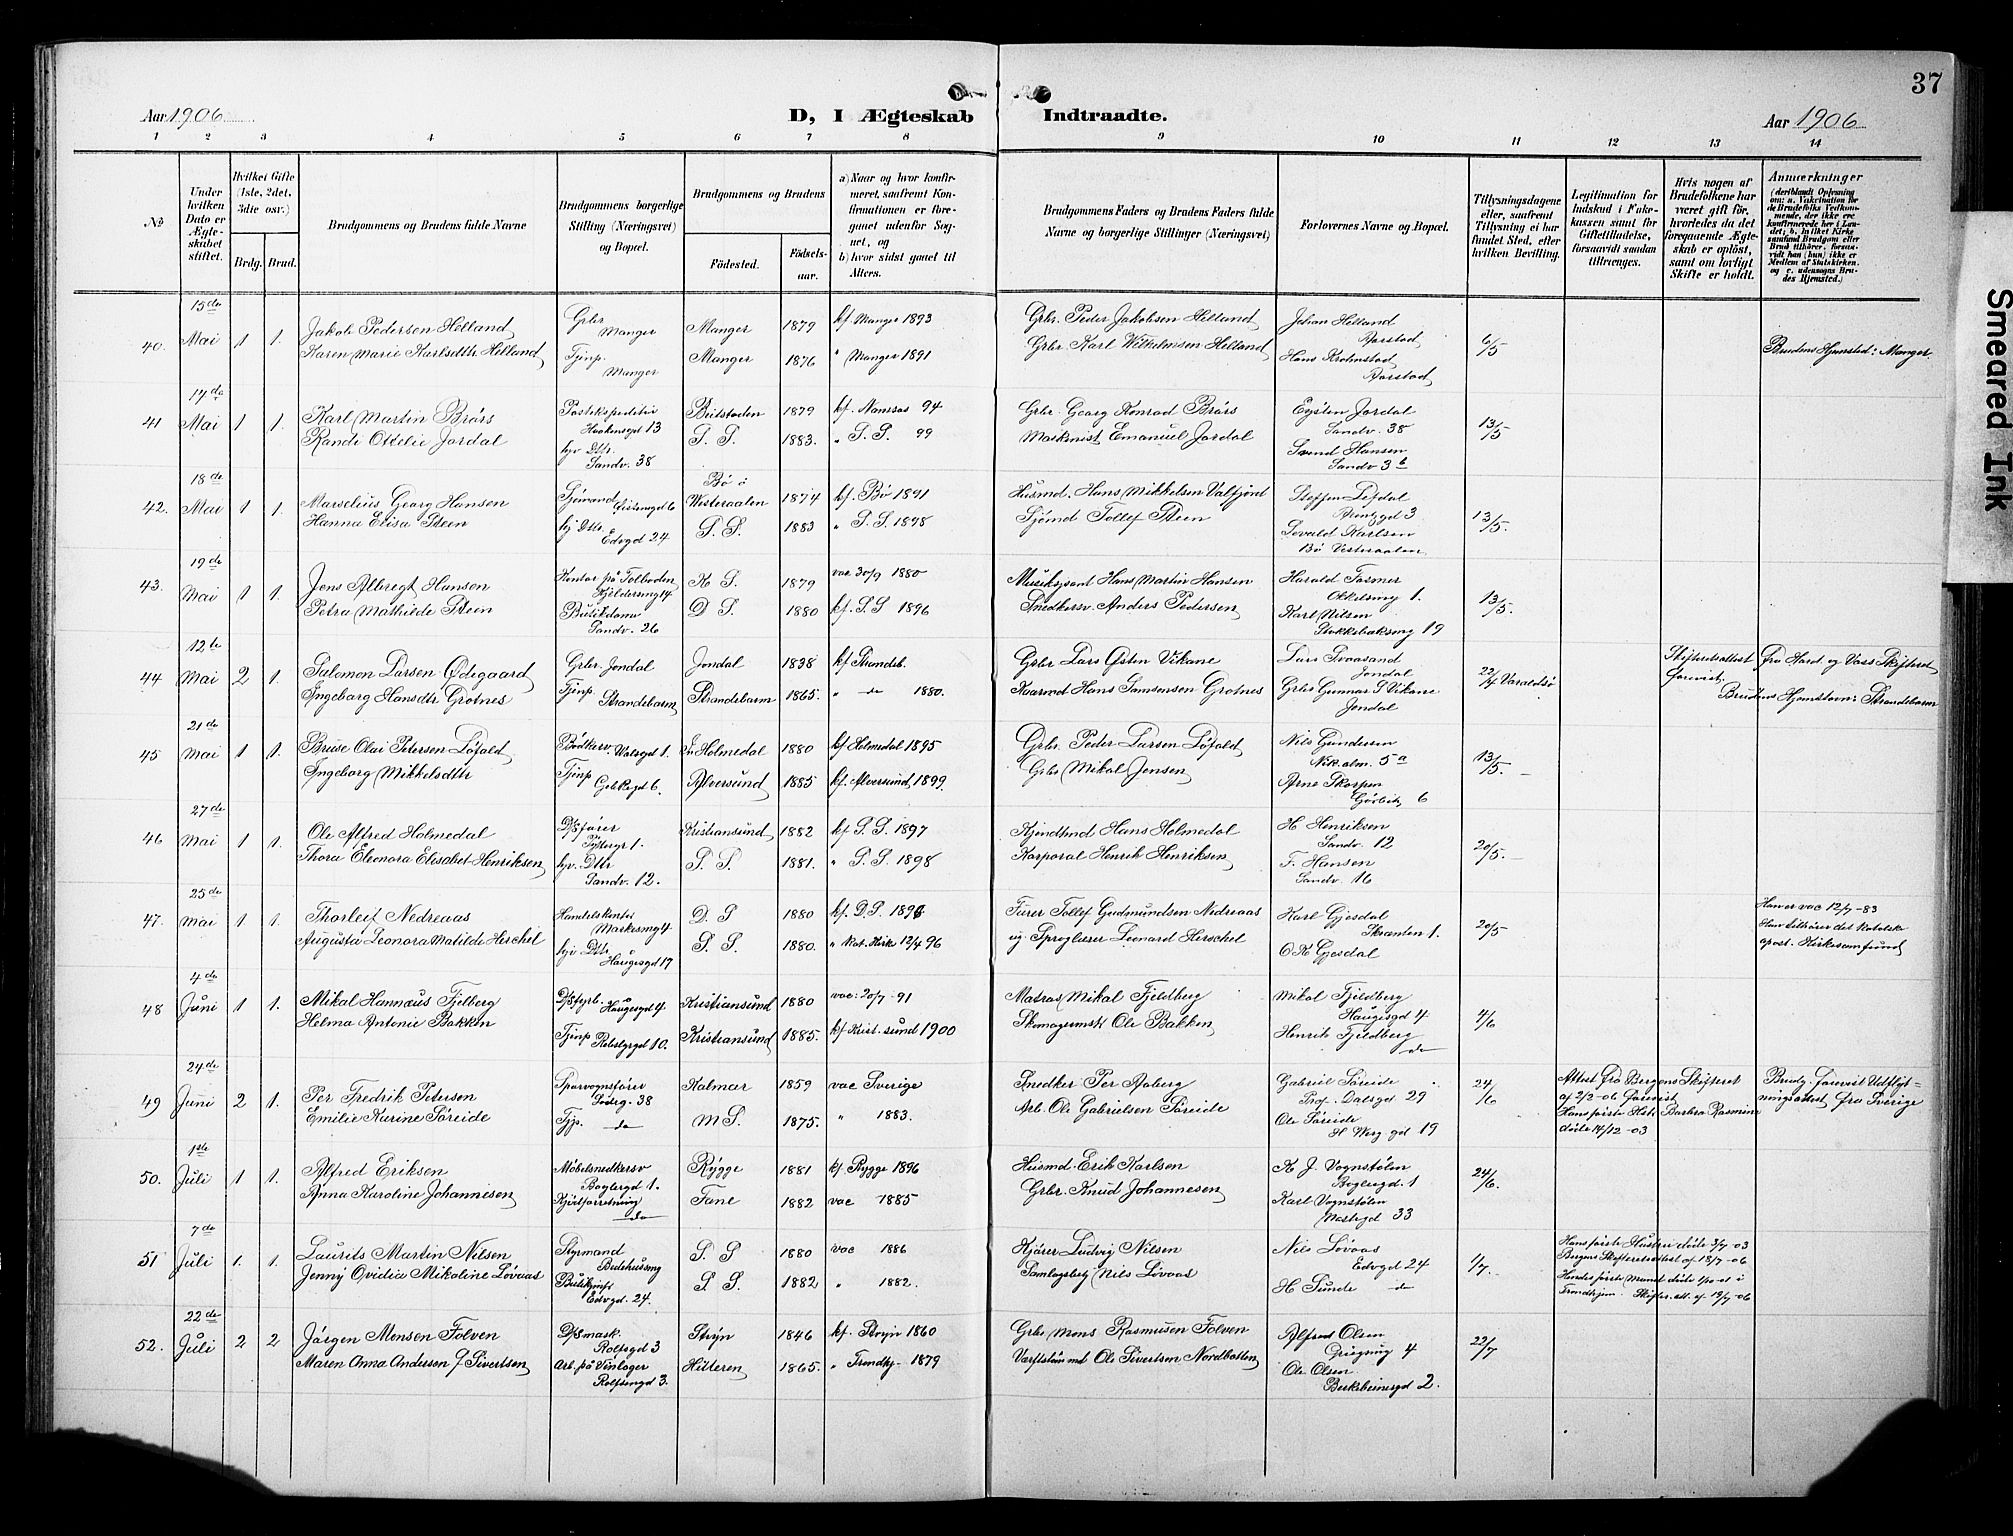 37
Aar 1906
D, I Ægteskab Indtraadte.
Aar 1906
1 2 3 4 5 6 7 8 9 10 11 12 13 14
No
Under hvilken Dato er Ægteskabet stiftet.
Hvilket Gifte (1ste, 2det, 3die osv.)
Brdg. Brud.
Brudgommens og Brudens fulde Navne
Brudgommens borgerlige Stilling (Næringsvei) og Bopæl.
Brudgommens og Brudens
Fødested.
Fødselsaar.
a) Naar og hvor konfirmeret, saafremt Konfirmationen er foregaaet udenfor Sognet, og
b) hvor sidst gaaet til Alters.
Brudgommens Faders og Brudens Faders fulde Navne og borgerlige Stillinger (Næringsvei)
Forlovernes Navne og Bopæl.
Tillysningsdagene eller, saafremt Tillysning ei har fundet Sted, efter hvilken Bevilling.
Legitimation for Indskud i Fakkassen samt for Giftetilladelse, forsaavidt saadan tiltrænges.
Hvis nogen af Brudefolkene har været gift før, hvorledes da det foregaaende Ægteskab er opløst, samt om lovligt Skifte er holdt.
Anmærkninger
40. 15de Mai 1 1. Jakob Pedersen Helland Grbr Manger Manger 1879 kf. Manger 1893 Grbr. Peder Jakobsen Helland Johan Helland Aarstad 6/5
Karen Marie Karlsdtr Helland Tjnp. Manger Manger 1876 " Manger 1891 Grbr Karl Wilhelmsen Helland Hans Kolmstad Aarstad Brudens Hjemsted: Manger
41 17de Mai 1 1. Karl Martin Brørs Postekspeditør Haakensgd 13 Beitstaden 1879 kf. Namsos 94 Grbr. Georg Konrad Brørs Eysten Jordal Sandv. 38 13/5
Randi Ottilie Jordal hjv Dttr. Sandv. 38 S. S. 1883. " S. S. 99 Maskinist Emanuel Jordal Svend Hansen Sandv 3 b
42. 18de Mai 1 1. Marselius Georg Hansen Sjømand Bø i Westeraalen 1874 kf. Bø 1891 Husmd. Hans Mikkelsen Valfjord Steffen 3 13/5
Hanna Elisa Steen hj Dttr. Edvgd 24 S. S. 1883 " S. S. 1898 Sjømd Tollef Steen Sevald Karlsen Bø Vesteraalen
43. 19de Mai 1 1. Jens Albregt Hansen Kontor på Tolboden 14 K S. 1879 vac 30/9 1880 Musiksjant Hans Martin Hansen Harald Fasmer 1. 13/5.
Petra Mathilde Steen Butikdame Sandv. 26 D S. 1880 kf. S. S 1896 Snedkersv. Anders Pedersen Karl Nilsen Stokkebaksmg 19
44 12te Mai 2 1. Salomon Larsen Ødegaard Grbr. Jondal Jondal 1838 kf Strandeb. Grbr Lars Østen Vikane Lars Svaasand Jondal 22/4 Varaldsø Skifteretsattest forevist fra Hard og Voss Skifteret
Ingeborg Hansdtr Grotnes Tjnp. Strandebarm Strandebarm 1865. " do 1880. Kaarmd Hans Samsonsen Grotnes Grbr Gunnar S Vikane Jondal Brudens Hjemstavn: Strandebarm
45 21de Mai 1 1. Bruse Olai Petersen Løfald Bødkersv. 1. Holmedal 1880 kf Holmedal 1895 Grbr. Peder Larsen Løfald Nils Gundersen Nik. alm. 5 a 13/5.
Ingeborg Mikkelsdtr Tjnp 6. Alversund 1885 kf. Alversund 1899 Grbr Mikal Jensen Arne Skorpen 6
46 27de Mai 1 1. Ole Alfred Holmedal D/sfører 1. Kristiansund 1882 kf S. S. 1897 Kjendtmd Hans Holmedal H Henriksen Sandv. 12 20/5.
Thora Eleonora Elisabet Henriksen hjv. Dttr Sandv. 12. S. S 1881. " S. S. 1898 Korporal Henrik Henriksen F. Hansen Sandv. 16
47. 25de Mai 1 1. Thorleif Nedreaas Handelskontor Markesmg 4 D. S 1880 kf. D. S. 1896 Furer Tollef Gudmundsen Nedreaas Karl Gjesdal Skranten 1. 20/5 Han er vac 12/7-83
Augusta Leonora Matilde Herschel hjv Dttr Haugesgd 17 S. S. 1880. " Kat. Kirk 12/4 96 Sproglærer Leonard Herschel O K Gjesdal Hun tilhører det katolsk apost. Kirkesamfund
48 4de Juni 1 1. Mikal Hannæus Fjelberg D/Sfyrb. Haugesgd 4 Kristiansund 1880 vac: 20/7-91 Matros Mikal Fjeldberg Mikal Fjeldberg Haugesgd 4 4/6
Helma Antonie Bakken Tjnp 10. Kristiansund 1885. kf Krist.sund 1900 Skomagermst Ole Bakken Henrik Fjeldberg do
49 24de Juni 2 1. Per Fredrik Petersen Sporvognsfører 38 Kalmar 1859 vac Sverige Snedker Per Aaberg Gabriel Søreide Prof. Dalsgd 29 24/6 Attest fra Bergens Skifteret af 2/2-06 forevist Brudg. forevist Udflytningsattest fra Sverige
Emilie Karine Søreide Tjp. do M. S. 1875. " 1883. Arb. Ole Gabrielsen Søreide Ole Søreide H Werg. gd 19 Hans første Hstr. Barbra Rasmine døde 14/12-03
50. 1ste Juli 1 1. Alfred Eriksen Møbelsnedkersv 1. Rygge 1881 kf. Rygge 1896 Husmd. Erik Karlsen K J. Vognstølen 1 24/6.
Anna Karoline Johannesen Kjolforretning do Fane 1882 vac 1885 Grbr. Knud Johannesen Karl Vognstølen 33
51 7de Juli 1. 1. Laurits Martin Nilsen Styrmand Bedehusmg S. S 1880 vac 1886 Kjører Ludvig Nilsen Nils Løvaas Edvgd 24 1/7. Hans første Hustru døde 3/7-03 Bergens Skifteretsattest af 18/7-06
Jenny Ovidia Mikoline Løvaas Butikjnfr Edvgd. 24. S. S. 1882 " 1882. Samlagsbetj Nils Løvaas H Sunde do Hendes første Mand døde 1/10-01 i Trondhjem. Skifter. att. af 19/7-06
52. 22de Juli 2 2 Jørgen Monsen Folven D/Smask. Rolfsgd 3 Stryn 1846 kf. Stryn 1860 Grbr Mons Rasmusen Folven Alfred Olsen Griegsmg 4 22/7
Maren Anna Andersen f Sivertsen Arb. på Vinlager Rolfsengd 3. Hiteren 1865. " Trondhj- 1879 Værftstømmd Ole Sivertsen Nordbotten Ole Olsen Birkebeinergd 2.
Smeared Ink